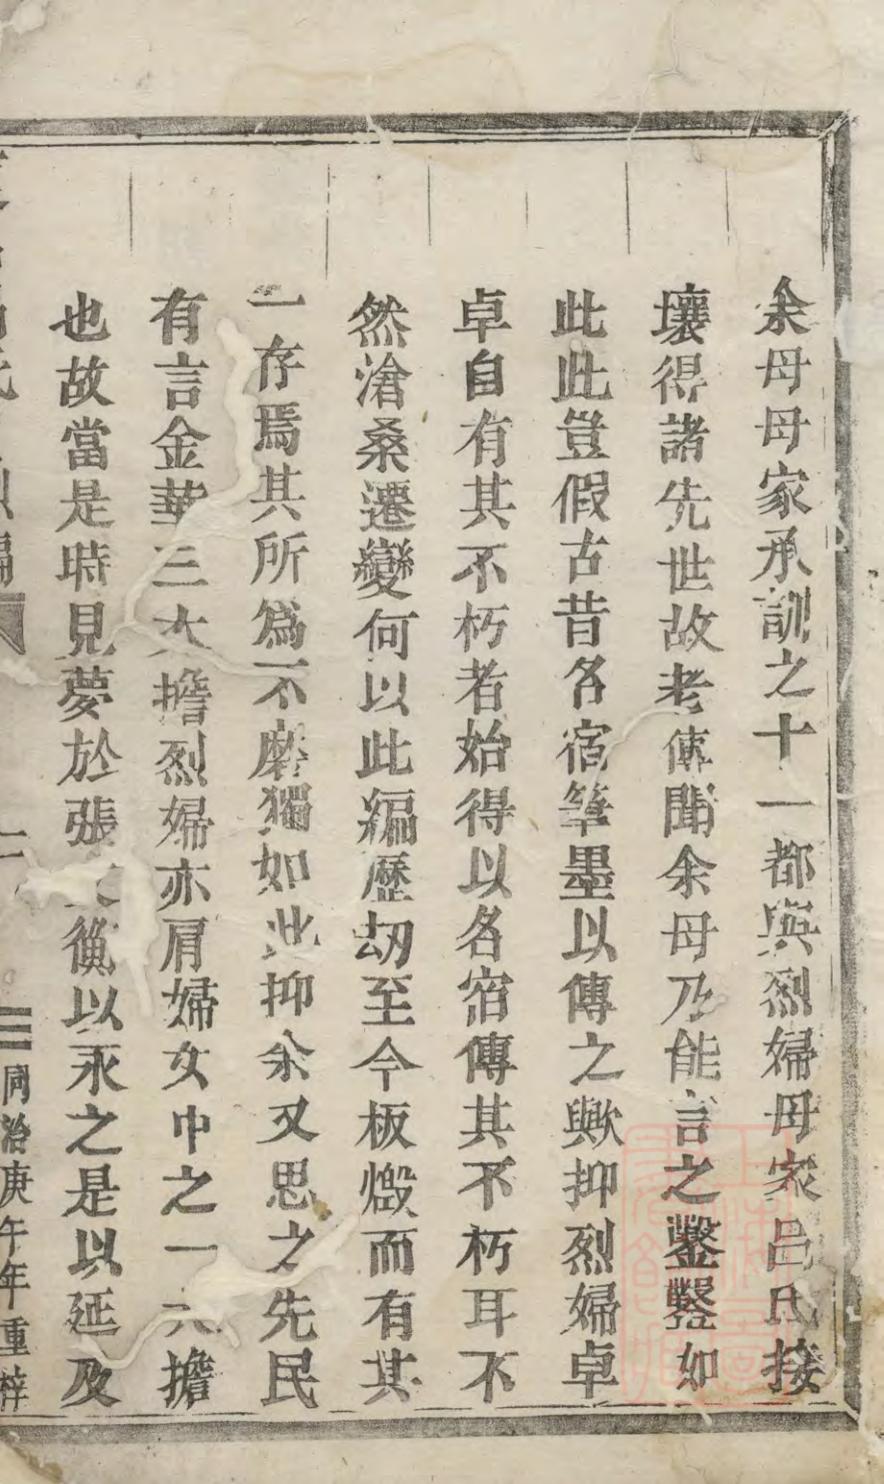 余母母家承訓之十一都與烈婦母家呂氏接
壤得諸先世故老傳聞余母乃能言之鑿鑿如
此此豈假古昔名宿筆墨以傳之歟抑烈婦卓
卓自有其不朽者始得以名宿傳其不朽耳不
然滄桑遷變何以此編歷刧至今板燬而有其
一存焉其所爲不磨獨如此抑余又思之先民
有言金華三大擔烈婦亦肩婦女中之一大擔
也故當是時見夢於張文以永之是以延及
同治庚午年重梓